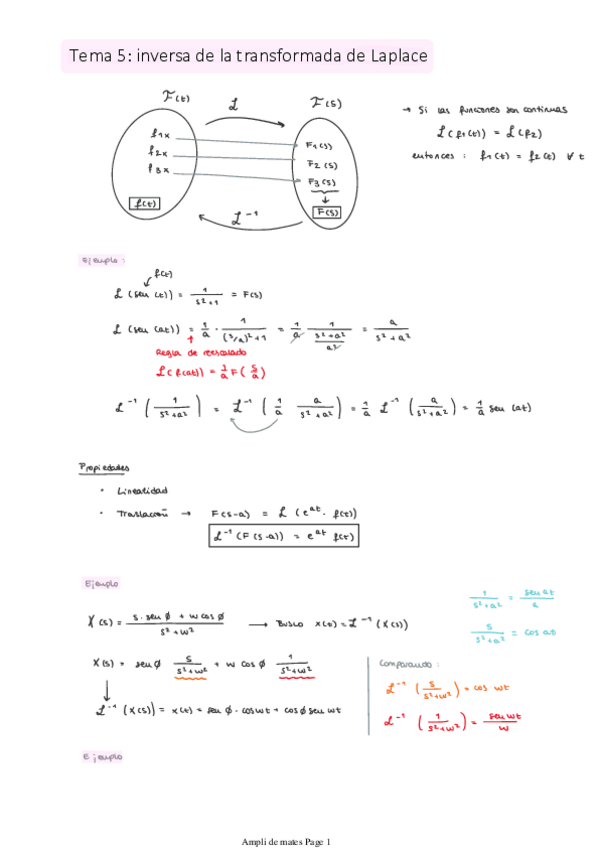 Tema 5: inversa de la transformada de Laplace
F(t) L F(s)
f1x
f2x
f3x
f(t)
F1(s)
F2(s)
F3(s)
↓
F(s)
L⁻¹
→ Si las funciones son continuas
L(f1(t)) = L(f2)
entonces : f1(t) = f2(t) ∀ t
Ejemplo :
f(t)
L (sen(t)) = 1/(s²+1) = F(s)
L (sen(at)) = 1/a · 1/((s/a)²+1) = 1/a · 1/((s²+a²)/a²) = a/(s²+a²)
Regla de reescalado
L(f(at)) = 1/a F(s/a)
L⁻¹ (1/(s²+a²)) = L⁻¹ (1/a a/(s²+a²)) = 1/a L⁻¹ (a/(s²+a²)) = 1/a sen(at)
Propiedades
· Linealidad
· Traslación → F(s-a) = L (e^at · f(t))
L⁻¹(F(s-a)) = e^at f(t)
Ejemplo
X(s) = (s·sen ø + w cos ø)/(s²+w²) → Busco x(t) = L⁻¹(X(s))
1/(s²+a²) = sen at/a
s/(s²+a²) = cos at
X(s) = sen ø s/(s²+w²) + w cos ø 1/(s²+w²)
↓
L⁻¹(X(s)) = x(t) = sen ø · cos wt + cos ø sen wt
Comparando :
L⁻¹ (s/(s²+w²)) = cos wt
L⁻¹ (1/(s²+w²)) = sen wt/w
Ejemplo
Ampli de mates Page 1